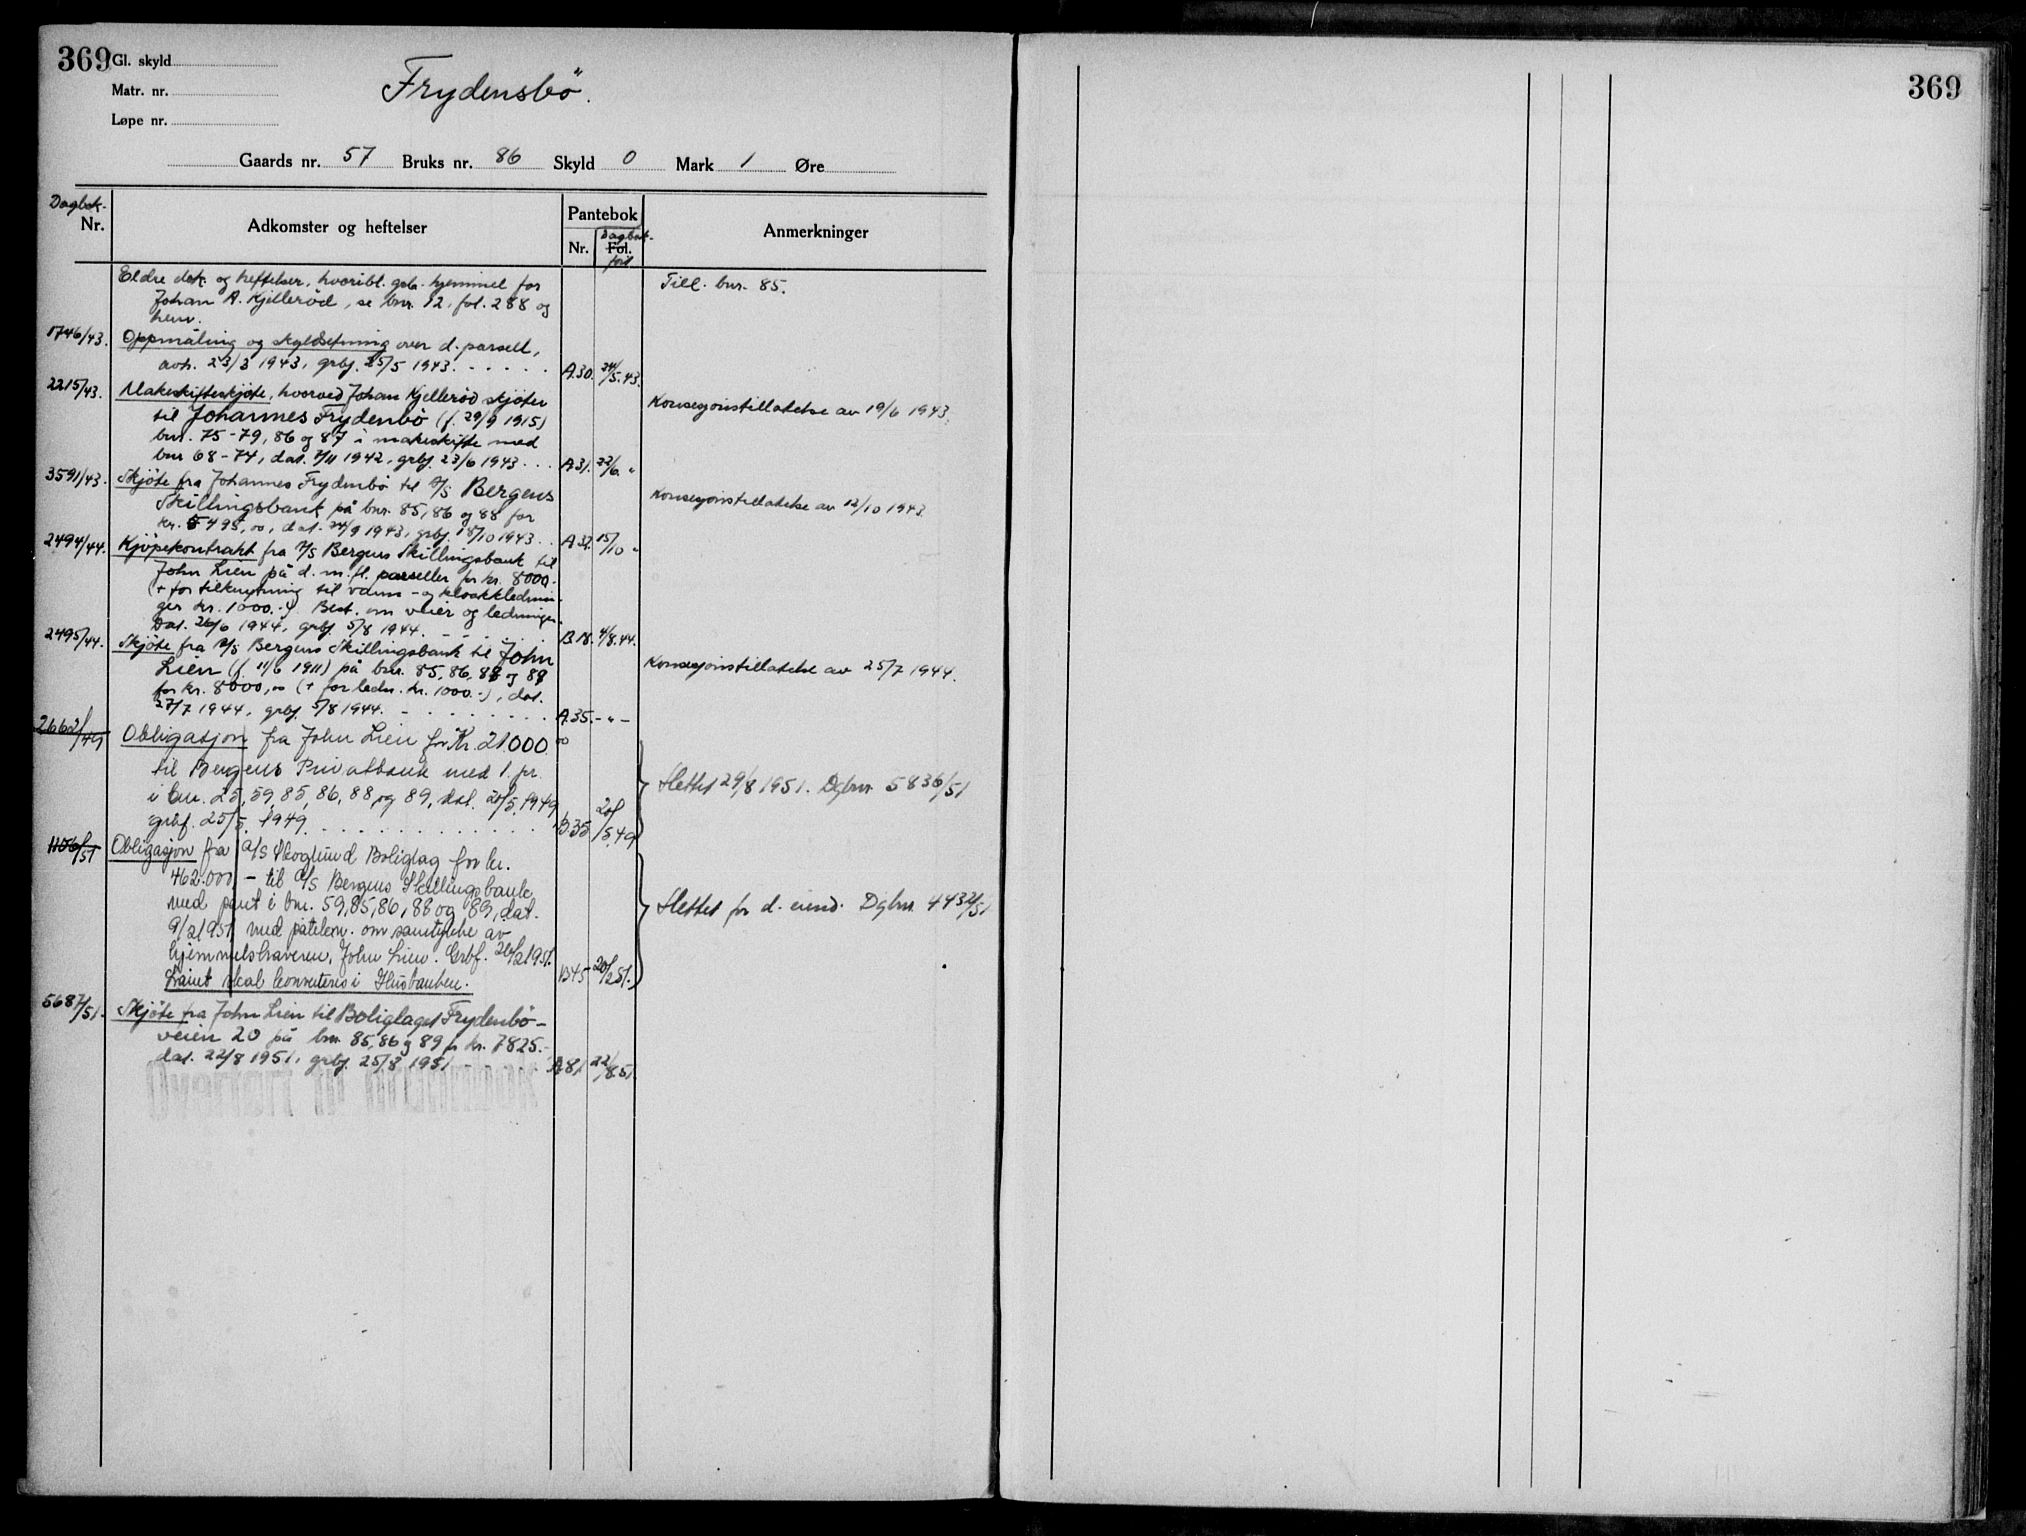 369 Gl. skyld
Matr. nr.
Løpe nr.
Frydensbö.
Gaards nr. 57 Bruks nr. 86 Skyld 0 Mark 1 Øre
Dagbok-
Nr. Adkomster og heftelser Pantebok Anmerkninger
Nr. Fol.
Dagbok-
ført
Eldre dok. og heftelser, hvoribl. grb. hjemmel for
Johan A. Kjelleröd, se bnr. 12, fol. 288 og
henv.
Till. bnr. 85.
1746/43. Oppmåling og skyldsetning over d. parsell,
avh. 23/3 1943, grbf. 25/5 1943. A.30. 24/5.43.
2215/43. Makeskifteskjöte, hvorved Johan Kjelleröd skjöter
til Johannes Frydenbö (f. 29/9 1915)
bnr. 75-79, 86 og 87 i makeskifte med
bnr 68-74, dat. 7/11 1942, grbf. 23/6 1943... A31. 22/6 "
Konsesjonstillatelse av 19/6 1943.
3591/43. Skjöte fra Johannes Frydenbö til A/S Bergens
Skillingsbank på bnr. 85, 86 og 88 for
kr. 5495,00, dat. 24/9 1943, grbf. 18/10 1943.. A32. 15/10 "
Konsesjonstillatelse av 12/10 1943.
2494/44. Kjöpekontrakt fra A/S Bergens Skillingsbank til
John Lien på d. m. fl. parseller for kr. 8000.-
(+ for tilknytning til vann- og kloakklednin-
ger kr. 1000.-). Best. om veier og ledninger.
Dat. 26/6 1944, grbf. 5/8 1944. B18. 4/8.44.
2495/44. Skjöte fra A/S Bergens Skillingsbank til John
Lien (f. 11/6 1911) på bnr. 85, 86, 88 og 89
for kr. 8000,00 (+ for ledn. kr. 1000.-), dat.
27/7 1944, grbf. 5/8 1944. A.35. - " -
Konsesjonstillatelse av 25/7 1944.
2662/49 Obligasjon fra John Lien for Kr. 21.000.00
til Bergens Privatbank med 1. pr.
i bnr. 25, 59, 85, 86, 88 og 89, dat. 20/5 1949,
grbf. 25/5. 1949. B35 20/5.49
Slettet 29/8 1951. Dgbnr. 5836/51
1106/51 Obligasjon fra A/S Skoglund Boliglag for kr.
462.000,- til A/S Bergens Skillingsbank
med pant i bnr. 59, 85, 86, 88 og 89, dat.
9/2 1951 med påtekn. om samtykke av
hjemmelshaveren, John Lien. Grbf. 26/2 1951.
Lånet skal konverteres i Husbanken. B45 20/2 51.
Slettet for d. eiend. Dgbnr. 4432/51
5687/51. Skjöte fra John Lien til Boliglaget Frydenbö-
veien 20 på bnr. 85, 86 og 89 for kr. 7825.-
dat. 22/8 1951, grbf. 25/8 1951 A81 22/8.51.
369